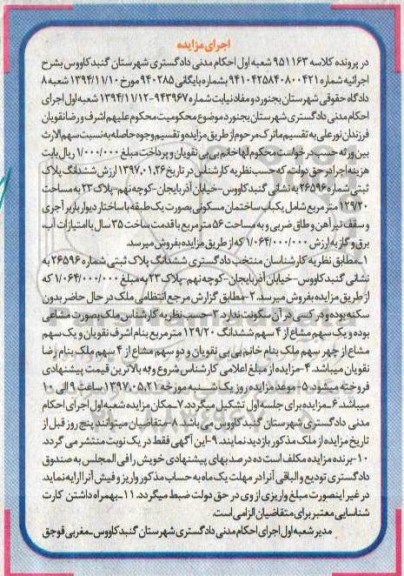 اجرای مزایده
در پرونده کلاسه ۹۵۱۱۶۳ شعبه اول احکام مدنی دادگستری شهرستان گنبد کاووس بشرح
اجرائیه شماره ۹۴۱۰۴۲۵۸۴۰۸۰۰۴۲۱ بشماره بایگانی ۹۴۰۲۸۵ مورخ ۱۳۹۴/۱۱/۱۰ شعبه ۸
دادگاه حقوقی شهرستان بجنورد و مفاد نیابت شماره ۹۴۳۹۶۷-۱۳۹۴/۱۱/۱۲ شعبه اول اجرای
احکام مدنی دادگستری شهرستان بجنورد موضوع محکومیت محکوم علیهم اشرف و رضا نقویان
فرزندان نور علی به تقسیم ماترک مرحوم از طریق مزایده و تقسیم وجوه حاصله به نسبت سهم الارث
بین ورثه حسب درخواست محکوم لها خانم بی بی نقویان و پرداخت مبلغ ۱/۰۰۰/۰۰۰ ریال بابت
هزینه اجرا در حق دولت، که حسب نظریه کارشناس در تاریخ ۱۳۹۷،۰۱،۲۶ ارزش ششدانگ پلاک
ثبتی شماره ۲۶۵۹۶ به نشانی گنبد کاووس - خیابان آذربایجان - کوچه نهم - پلاک ۲۳ به مساحت
۱۲۹/۲۰ متر مربع شامل یکباب ساختمان مسکونی بصورت یک طبقه با ساختار دیوار باربر آجری
و سقف تیرآهن و طاق ضربی و به مساحت ۵۶ متر مربع با قدمت ساخت ۳۵ سال با امتیازات آب،
برق و گاز به ارزش ۱/۰۶۴/۰۰۰/۰۰۰ که از طریق مزایده بفروش میرسد
۱-مطابق نظریه کارشناسان منتخب دادگستری ششدانگ پلاک ثبتی شماره ۲۶۵۹۶ به
نشانی گنبد کاووس - خیابان آذربایجان - کوچه نهم - پلاک ۲۳ به مبلغ ۱/۰۶۴/۰۰۰/۰۰۰ که
از طریق مزایده بفروش میرسد. ۲-مطابق گزارش مرجع انتظامی ملک در حال حاضر بدون
سکنه بوده و در کسی در آن سکونت ندارد ۳-حسب نظریه کارشناس ملک بصورت مشاعی
بوده و یک سهم مشاع از ۴ سهم ششدانگ ۱۲۹/۲۰ متر مربع بنام اشرف نقویان و یک سهم
مشاع از چهر سهم ملک بنام خانم بی بی نقویان و دو سهم مشاع از ۴ سهم ملک بنام رضا
نقویان میباشد. ۴-مزایده از مبلغ اعلامی کارشناس شروع و به بالاترین قیمت پیشنهادی
فروخته میشود. ۵-موعد مزایده روز یک شنبه مورخه ۱۳۹۷،۰۵،۲۱ ساعت ۹ الی ۱۰
میباشد ۶-مزایده برای جلسه اول تشکیل میگردد. ۷-مکان مزایده شعبه اول اجرای احکام
مدنی دادگستری شهرستان گنبد کاووس می باشد ۸-متقاضیان میتوانند پنج روز قبل از
تاریخ مزایده از ملک مذکور بازدید نمایند. ۹-این آگهی فقط در یک نوبت منتشر می گردد
۱۰-برنده مزایده مکلف است ده درصد بهای پیشنهادی خویش را فی المجلس به صندوق
دادگستری تودیع و الباقی آنرا در مهلت یک ماه به حساب مذکور واریز و فیش آنرا ارایه نماید.
در غیر اینصورت مبلغ واریزی از وی در حق دولت ضبط میگردد. ۱۱-بهمراه داشتن کارت
شناسایی معتبر برای متقاضیان الزامی است.
مدیر شعبه اول اجرای احکام مدنی دادگستری شهرستان گنبد کاووس-مغربی قوجق